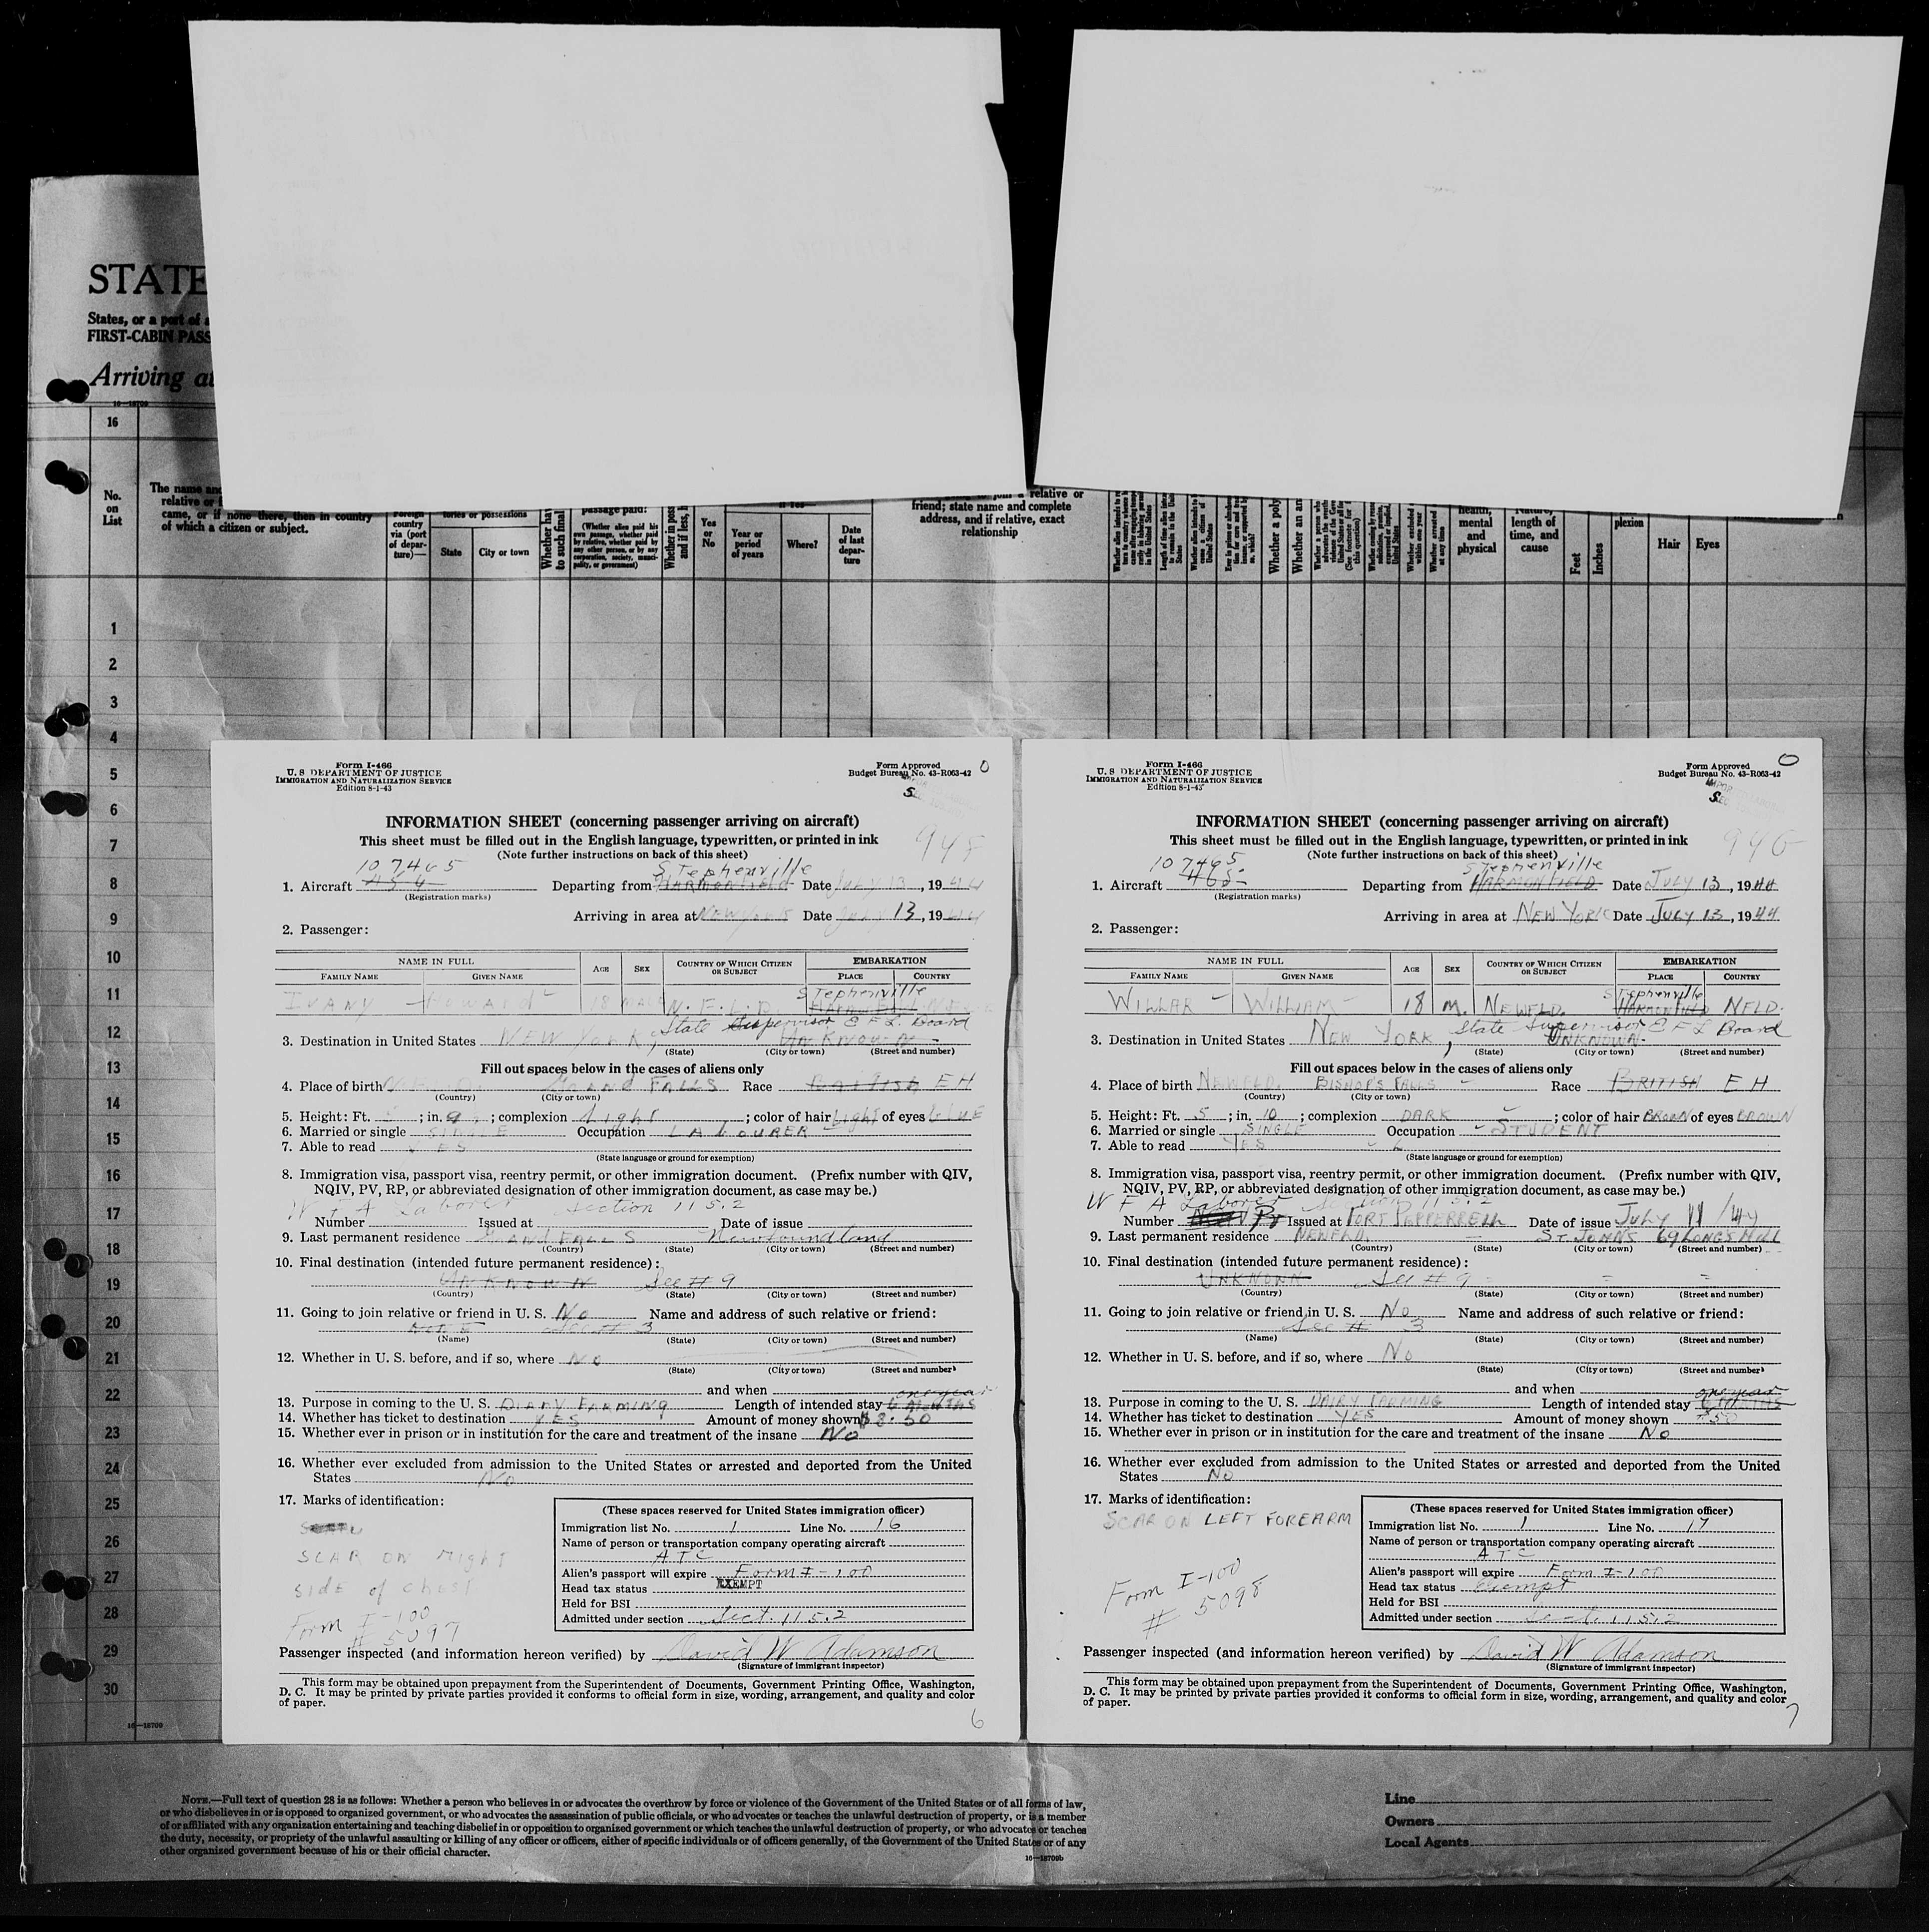 STATE
States, or a port of a
FIRST-CABIN PASS
Arriving at
16—18709
16
No.
on
List
The name and
relative or f
came, or if none there, then in country
of which a citizen or subject.
Foreign
country
via (port
of depar-
ture)—
tories or possessions
State
City or town
Whether hav
to such final
passage paid?
(Whether alien paid his
own passage, whether paid
by relative, whether paid by
any other person, or by any
corporation, society, munici-
pality, or government)
Whether in poss
and if less, h
If Yes—
Yes
or
No
Year or
period
of years
Where?
Date
of last
depar-
ture
join a relative or
friend; state name and complete
address, and if relative, exact
relationship
Whether a poly
Whether an an
health,
mental
and
physical
Nature,
length of
time, and
cause
Feet
Inches
plexion
Hair
Eyes
1
2
3
4
5
6
7
8
9
10
11
12
13
14
15
16
17
18
19
20
21
22
23
24
25
26
27
28
29
30
16—18709
Form I-466
U. S DEPARTMENT OF JUSTICE
IMMIGRATION AND NATURALIZATION SERVICE
Edition 8-1-43
Form Approved
Budget Bureau No. 43-R063-42
0
S
INFORMATION SHEET (concerning passenger arriving on aircraft)
This sheet must be filled out in the English language, typewritten, or printed in ink
(Note further instructions on back of this sheet)
948
107465
Stephenville
1. Aircraft Departing from HARMON FIELD Date July 13, 1944
(Registration marks)
Arriving in area at New York Date July 13, 1944
2. Passenger:
NAME IN FULL
AGE
SEX
COUNTRY OF WHICH CITIZEN
OR SUBJECT
EMBARKATION
FAMILY NAME
GIVEN NAME
PLACE
COUNTRY
Stephenville
IVANY Howard 18 MALE N.F.L.D.
State Supervisor E F L Board
3. Destination in United States NEW YORK, UNKNOWN
(State) (City or town) (Street and number)
Fill out spaces below in the cases of aliens only
4. Place of birth GRAND FALLS Race British EH
(Country) (City or town)
5. Height: Ft. 5; in. 9; complexion Light; color of hair Light of eyes BLUE
6. Married or single SINGLE Occupation LABOURER
7. Able to read YES
(State language or ground for exemption)
8. Immigration visa, passport visa, reentry permit, or other immigration document. (Prefix number with QIV,
NQIV, PV, RP, or abbreviated designation of other immigration document, as case may be.)
W F A Laborer Section 115.2
Number Issued at Date of issue
9. Last permanent residence GRAND FALLS Newfoundland
(Country) (State) (City or town) (Street and number)
10. Final destination (intended future permanent residence):
UNKNOWN See # 9
(Country) (State) (City or town) (Street and number)
11. Going to join relative or friend in U. S. No Name and address of such relative or friend:
See # 3
(Name) (State) (City or town) (Street and number)
12. Whether in U. S. before, and if so, where No
(State) (City or town) (Street and number)
and when
one year
13. Purpose in coming to the U. S. DIARY FARMING Length of intended stay 6 MONTHS
14. Whether has ticket to destination YES Amount of money shown $3.50
15. Whether ever in prison or in institution for the care and treatment of the insane No
16. Whether ever excluded from admission to the United States or arrested and deported from the United
States No
17. Marks of identification:
SCAR ON RIGHT
SIDE of CHEST
Form I-100
# 5097
(These spaces reserved for United States immigration officer)
Immigration list No. 1 Line No. 16
Name of person or transportation company operating aircraft
ATC
Alien's passport will expire Form I-100
Head tax status EXEMPT
Held for BSI
Admitted under section Sect. 115.2
Passenger inspected (and information hereon verified) by David W Adamson
(Signature of immigrant inspector)
This form may be obtained upon prepayment from the Superintendent of Documents, Government Printing Office, Washington,
D. C. It may be printed by private parties provided it conforms to official form in size, wording, arrangement, and quality and color
of paper.
6
Form I-466
U. S DEPARTMENT OF JUSTICE
IMMIGRATION AND NATURALIZATION SERVICE
Edition 8-1-43
Form Approved
Budget Bureau No. 43-R063-42
0
S
INFORMATION SHEET (concerning passenger arriving on aircraft)
This sheet must be filled out in the English language, typewritten, or printed in ink
(Note further instructions on back of this sheet)
946
107465
Stephenville
1. Aircraft 465 Departing from HARMON FIELD Date JULY 13, 1944
(Registration marks)
Arriving in area at NEW YORK Date JULY 13, 1944
2. Passenger:
NAME IN FULL
AGE
SEX
COUNTRY OF WHICH CITIZEN
OR SUBJECT
EMBARKATION
FAMILY NAME
GIVEN NAME
PLACE
COUNTRY
Stephenville
WILLAR WILLIAM 18 M. NEWFLD. HARMON FIELD NFLD.
State Supervisor E F L Board
3. Destination in United States NEW YORK, UNKNOWN
(State) (City or town) (Street and number)
Fill out spaces below in the cases of aliens only
4. Place of birth NEWFLD. BISHOPS FALLS Race BRITISH EH
(Country) (City or town)
5. Height: Ft. 5; in. 10; complexion DARK; color of hair BROWN of eyes BROWN
6. Married or single SINGLE Occupation STUDENT
7. Able to read YES
(State language or ground for exemption)
8. Immigration visa, passport visa, reentry permit, or other immigration document. (Prefix number with QIV,
NQIV, PV, RP, or abbreviated designation of other immigration document, as case may be.)
W F A Laborer Section 115.2
Number Issued at FORT PEPPERRELL Date of issue JULY 11/44
9. Last permanent residence NEWFLD. ST. JOHNS 69 LONGS HILL
(Country) (State) (City or town) (Street and number)
10. Final destination (intended future permanent residence):
UNKNOWN See # 9
(Country) (State) (City or town) (Street and number)
11. Going to join relative or friend in U. S. No Name and address of such relative or friend:
See # 3
(Name) (State) (City or town) (Street and number)
12. Whether in U. S. before, and if so, where No
(State) (City or town) (Street and number)
and when
one year
13. Purpose in coming to the U. S. DAIRY FARMING Length of intended stay 6 MONTHS
14. Whether has ticket to destination YES Amount of money shown $50
15. Whether ever in prison or in institution for the care and treatment of the insane No
16. Whether ever excluded from admission to the United States or arrested and deported from the United
States No
17. Marks of identification:
SCAR ON LEFT FOREARM
Form I-100
# 5098
(These spaces reserved for United States immigration officer)
Immigration list No. 1 Line No. 17
Name of person or transportation company operating aircraft
ATC
Alien's passport will expire Form I-100
Head tax status Exempt
Held for BSI
Admitted under section Sect. 115.2
Passenger inspected (and information hereon verified) by David W Adamson
(Signature of immigrant inspector)
This form may be obtained upon prepayment from the Superintendent of Documents, Government Printing Office, Washington,
D. C. It may be printed by private parties provided it conforms to official form in size, wording, arrangement, and quality and color
of paper.
7
NOTE.—Full text of question 28 is as follows: Whether a person who believes in or advocates the overthrow by force or violence of the Government of the United States or of all forms of law,
or who disbelieves in or is opposed to organized government, or who advocates the assassination of public officials, or who advocates or teaches the unlawful destruction of property, or is a member
of or affiliated with any organization entertaining and teaching disbelief in or opposition to organized government or which teaches the unlawful destruction of property, or who advocates or teaches
the duty, necessity, or propriety of the unlawful assaulting or killing of any officer or officers, either of specific individuals or of officers generally, of the Government of the United States or of any
other organized government because of his or their official character.
16—18709b
Line
Owners
Local Agents